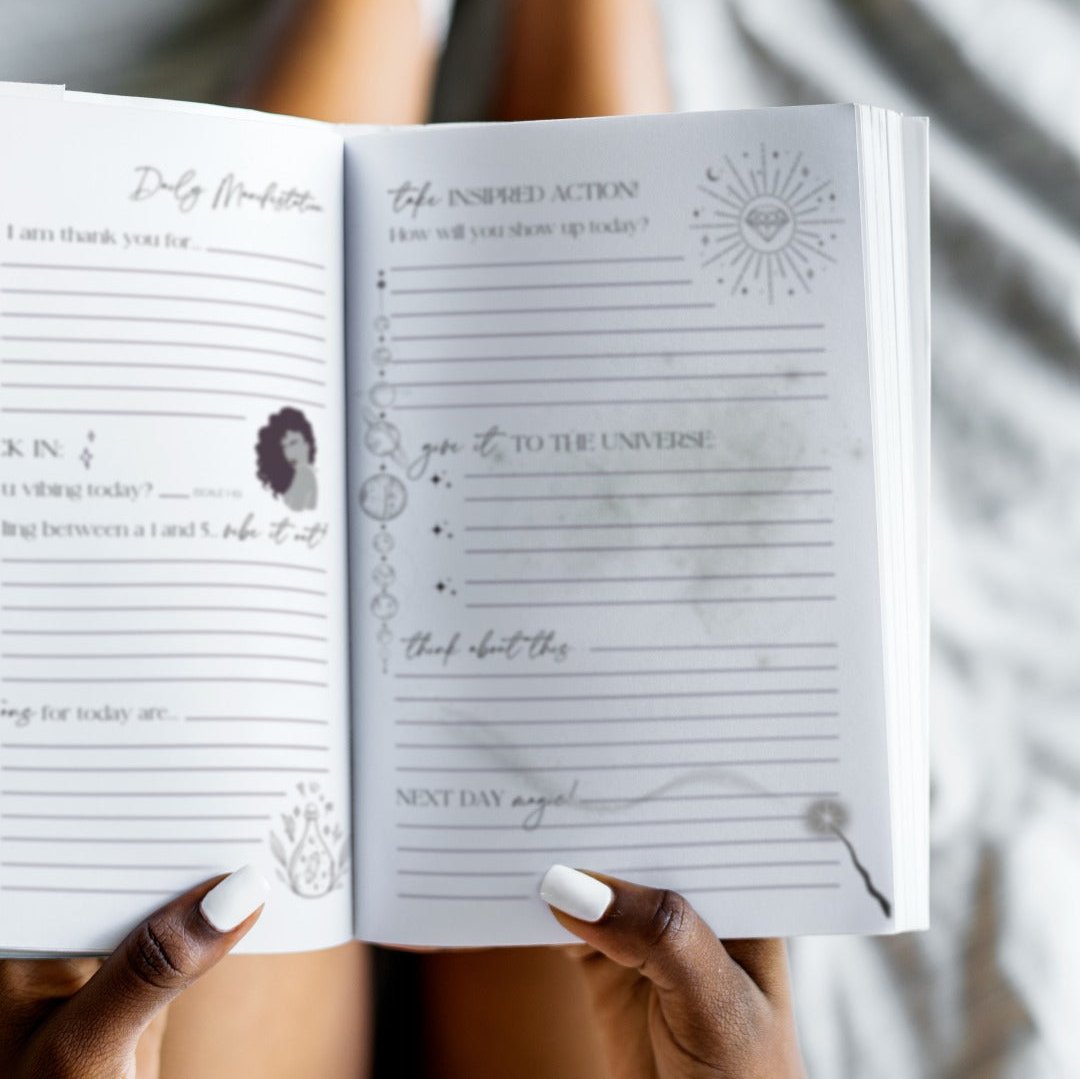 Daily Manifestation
I am thank you for..
CK IN:
u vibing today?
ling between a 1 and 5.. vibe it out!
for today are..
take INSIPRED ACTION!
How will you show up today?
give it TO THE UNIVERSE:
think about this
NEXT DAY magic!